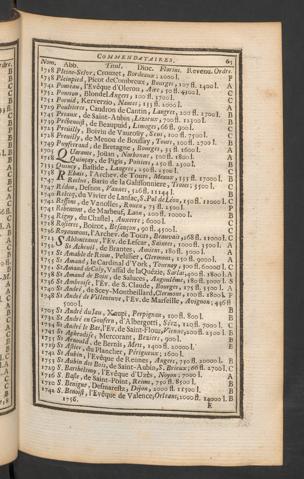 COMMENDATAIRES. 65
Nom. Abb. Titul. Dioc. Florins. Revenu. Ordre.
1758 Pleine-Selve, Crouzet, Bordeaux: 2000 l. P
Pleinpied, Picot de Combreux, Bourges, 127 fl. 1400 l. A
1742 Ponteau, l'Evêque d'Oleron, Aire, 50 fl. 4500 l. C
Pontron, Blondel Angers, 100 fl. 2700 l. C
1751 Pornid, Kerverzio, Nantes: 153 fl. 2000 l. A
Poultieres, Caudron de Cantin, Langres, 100 fl. 1700 l. B
Preaux, de Saint-Aubin, Lezieux, 700 fl. 12500 l. B
Prebenoist, de Beaupuid, Limoges, 66 fl. 900 l. C
1723 Preuilly, Boivin de Vaurouy, Sens, 100 fl. 7500 l. C
Preuilly, de Menou de Boussay, Tours, 100 fl. 2700 l. B
1749 Puyferrand, de Bretagne, Bourges, 55 fl. 1650 l. A
Quarante, Jouan, Narbonne, 100 fl. 1800 l. A
Quinçay, de Pigis, Poitiers, 100 fl. 2500 l. B
Quincy, Bastide, Langres, 100 fl. 2500 l. C
1738 Rebais, l'Archev. de Tours, Meaux, 155 fl. 17000 l. B
1747 Reclus, Barin de la Galissonniere, Troyes; 5500 l. C
1747 Rédon, Desnos, Vannes, 526 fl. 15144 l. B
1740 Relecq, du Vivier de Lanfac, S. Pol de Léon, 150 fl. 11000 l. C
1742 Ressons, de Vanolles, Rouen, 75 fl. 2500 l. P
1741 Ribemont, de Marbeuf, Laon, 200 fl. 10000 l. B
1754 Rigny, du Chastel, Auxerre: 6000 l. C
Roseires, Boizot, Besançon, 90 fl. 4500 l. C
Royaumont, l'Archev. de Tours, Beauvais, 268 fl. 11000 l. C
Sabloncieaux, l'Ev. de Lescar, Saintes, 1000 fl. 3500 l. A
St Acheuil, de Brantes, Amiens, 180 fl. 5000 l. A
1751 St Amable de Riom, Pelissier, Clermont, 150 fl. 9000 l. A
St Amand, le Cardinal d'York, Tournay, 3000 fl. 60000 l. B
St Amand de Coly, Vassal de la Quéssie, Sarlat, 400 fl. 1800 l. A
St Amand de Boix, de Saluces, Angoulême, 180 fl. 5000 l. B
1756 St Ambroise, l'Ev. de S. Claude, Bourges, 175 fl. 1500 l. A
St André, de Scey-Montbeillard, Clermont, 100 fl. 1800 l. P
1748 St André de Villeneuve, l'Ev. de Marseille, Avignon; 4500 fl.
St André du Jau, Xaupi, Perpignan, 100 fl. 800 l.
St André en Gouffern, d'Albergotti, Séez, 120 fl. 7000 l. C
St André le Bas, l'Ev. de Saint-Flour, Vienne, 200 fl. 2500 l. B
St Aphrodise, Mercorant, Beziers, 900 l. B
St Arnould, de Bernis, Metz, 1400 fl. 20000 l. B
1719 St Astier, du Plancher, Périgueux; 1600 l.
1742 St Aubin, l'Evêque de Rennes, Angers, 750 fl. 20000 l. B
1753 St Aubin des Bois, de Saint-Aubin, S. Brieux; 66 fl. 2700 l. C
1719 S. Barthelemy, l'Evêque d'Uzès, Noyon; 7000 l. A
1720 S. Basle, de Saint-Point, Reims, 750 fl. 8500 l. B
1720 S. Benigne, Desmaretz, Dijon, 2000 fl. 11500 l. B
1742 S. Benoist, l'Evêque de Valence, Orleans, 2000 fl. 14000 l. B
1756. E